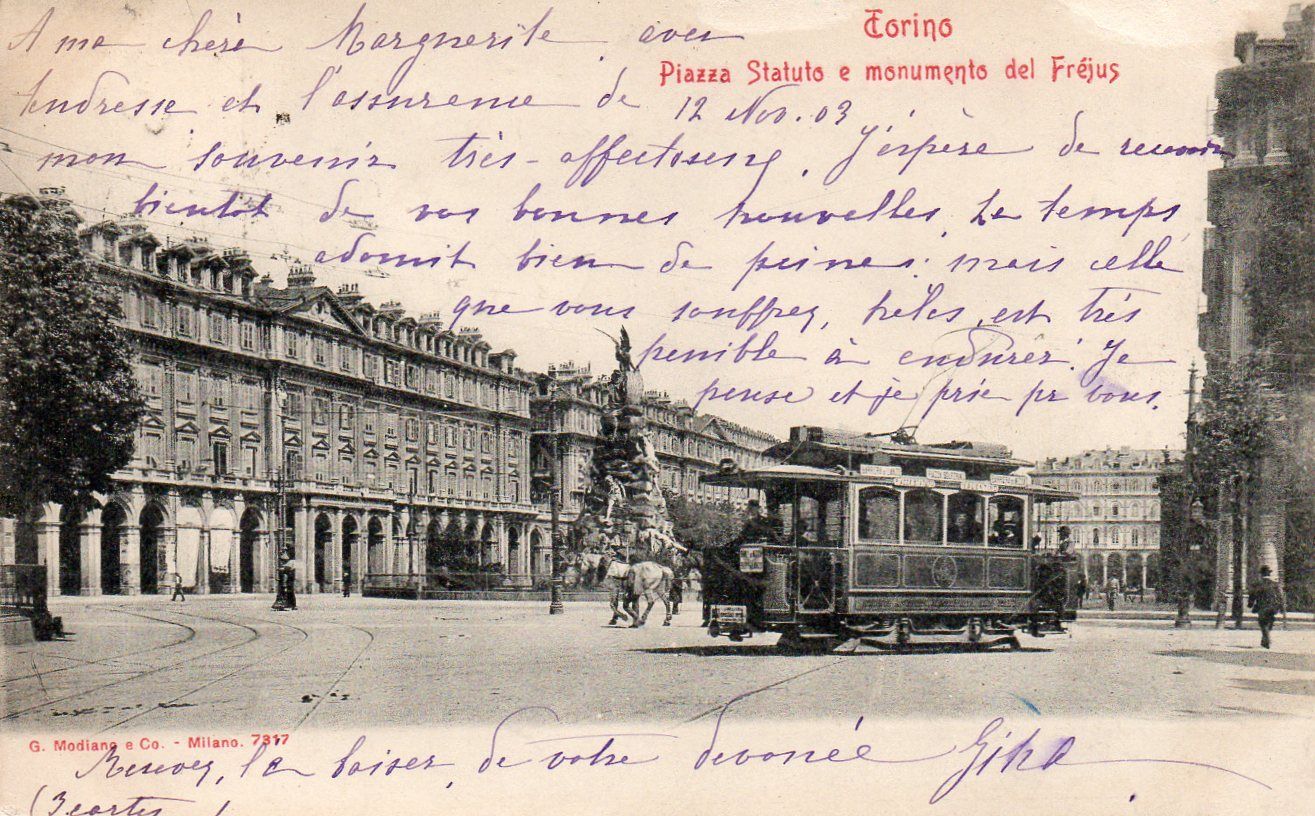 Torino
Piazza Statuto e monumento del Fréjus
A ma chère Marguerite, avec
tendresse et l'assurence de
12 Nov. 03
mon souvenir très-affectueux, J'éspère de recevoir
bientôt de vos bonnes nouvelles, Le temps
adoucit bien de peines; mais celle
que vous souffrez, hélas, est très
penible à endurer. Je
pense et je prie pr vous.
G. Modiano e Co. - Milano. 7317
Recevez, le baiser, de votre devouée
(3 cartes )